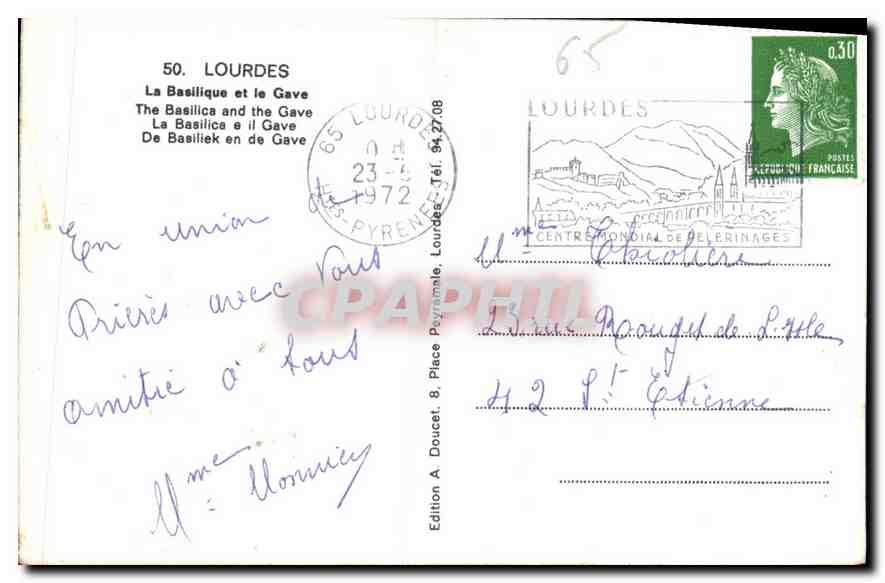 50. LOURDES
La Basilique et le Gave
The Basilica and the Gave
La Basilica e il Gave
De Basiliek en de Gave
65 LOURDES
23-5
1972
HTES PYRENEES
65
LOURDES
CENTRE MONDIAL DE PELERINAGES
0,30
POSTES
RÉPUBLIQUE FRANÇAISE
En union et
Prières avec vous
amitié à tous
Mme
Edition A. Doucet. 8, Place Peyramale, Lourdes. Tél. 94.27.08
Mme Thiolière
23 rue Rouget de L'Isle
42 St Etienne
CPAPHIL